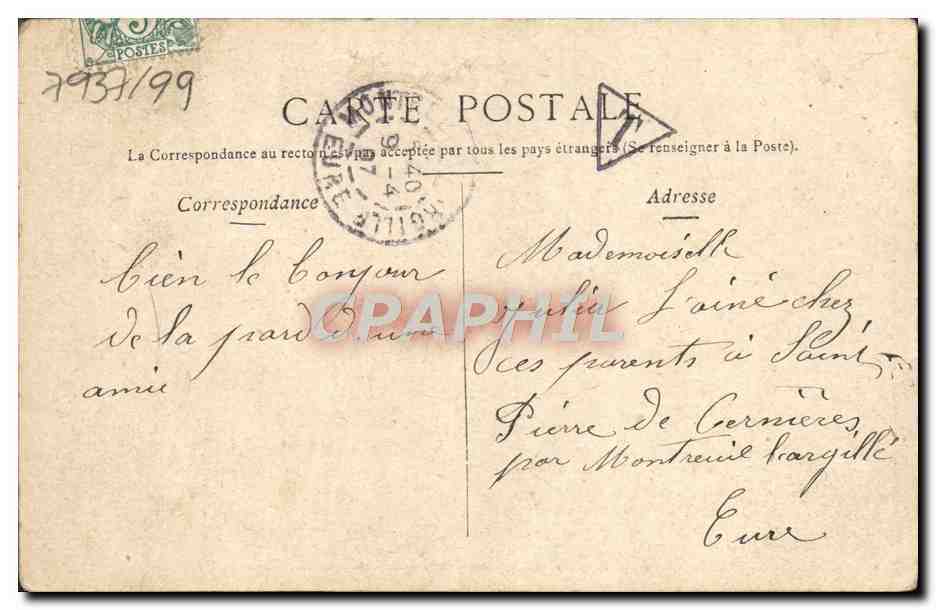 5
POSTES
7937/99
CARTE POSTALE
T
La Correspondance au recto n'est pas acceptée par tous les pays étrangers (Se renseigner à la Poste).
Correspondance
Adresse
EURE
8 40
9 - 4
07
Bien le bonjour
de la pard d'une
amie
Mademoiselle
L'ainé chez
ces parents à Saint
Pierre de Cernières
par Montreuil largillé
Eure
CPAPHIL